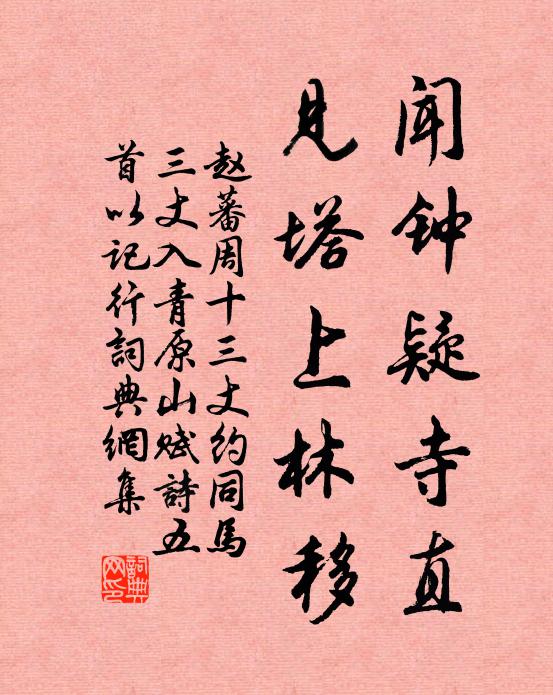 闻钟疑寺直
见塔上林移
赵蕃周十三丈约同馬
三丈入青原山赋詩五
首以记行詞典網集
詞典网印